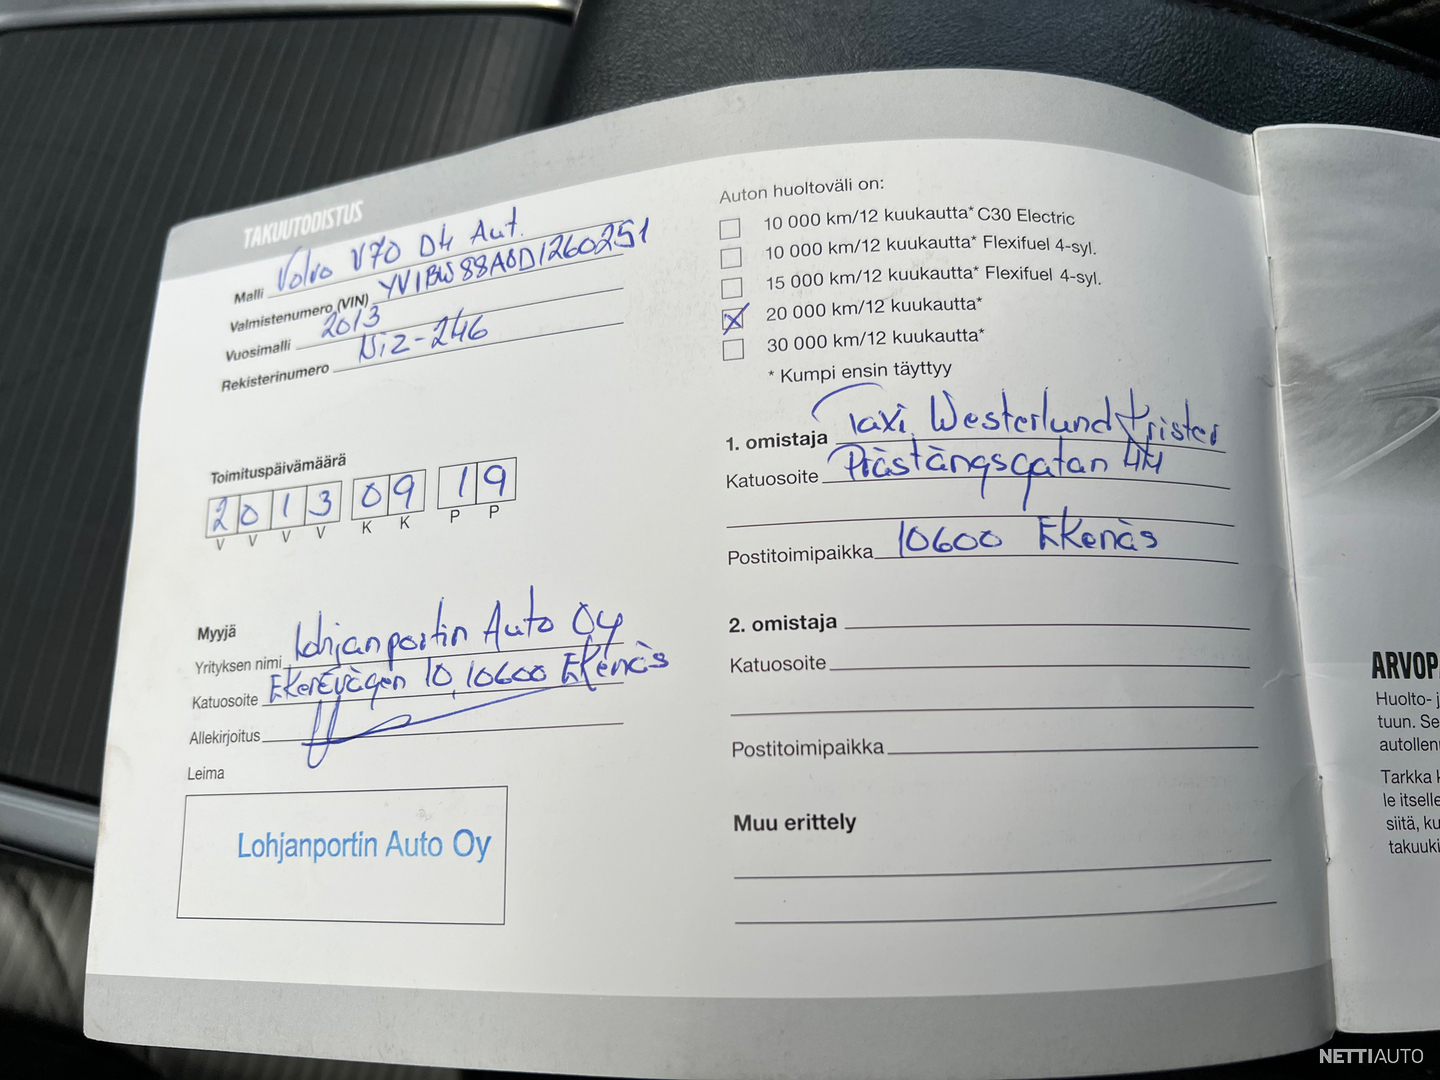 TAKUUTODISTUS
Malli Volvo V70 D4 Aut.
Valmistenumero (VIN) YV1BW88A8D1260251
Vuosimalli 2013
Rekisterinumero NIZ-246
Toimituspäivämäärä
2013 09 19
V V V V K K P P
Myyjä
Yrityksen nimi Lohjanportin Auto Oy
Katuosoite Ekenävägen 10, 10600 Ekenäs
Allekirjoitus
Leima
Lohjanportin Auto Oy
Auton huoltoväli on:
10 000 km/12 kuukautta* C30 Electric
10 000 km/12 kuukautta* Flexifuel 4-syl.
15 000 km/12 kuukautta* Flexifuel 4-syl.
X 20 000 km/12 kuukautta*
30 000 km/12 kuukautta*
* Kumpi ensin täyttyy
1. omistaja Taxi Westerlund Krister
Katuosoite Prästängsgatan 44
Postitoimipaikka 10600 Ekenäs
2. omistaja
Katuosoite
Postitoimipaikka
Muu erittely
ARVOP
Huolto- j
tuun. Se
autollen
Tarkka k
le itselle
siitä, ku
takuuki
NETTIAUTO